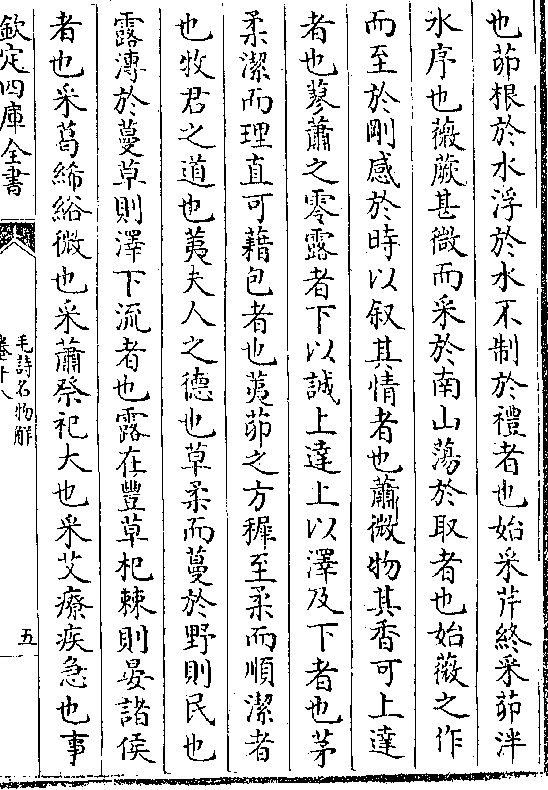 也茆根於水浮於水不制於禮者也始采芹終采茆泮
氷序也薇蕨甚微而采於南山蕩於取者也始薇之作
而至於剛感於時以叙其情者也蕭微物其香可上達
者也蓼蕭之零露者下以誠上達上以澤及下者也茅
柔潔而理直可藉包者也荑茆之方穉至柔而順潔者
也牧君之道也荑夫人之德也草柔而蔓於野則民也
露漙於蔓草則澤下流者也露在豐草杞棘則晏諸侯
者也采葛絺綌微也采蕭祭祀大也采艾療疾急也事
欽定四庫全書
毛詩名物解
卷十八
五